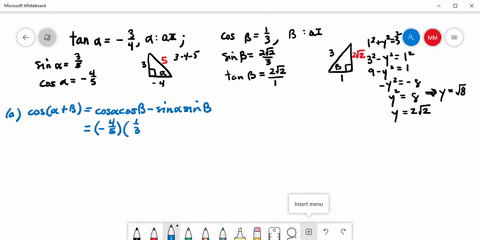 Microsoft Whiteboard
tan α = -3/4, α: QII;
sin α = 3/5
cos α = -4/5
3
5
α
-4
3-4-5
cos β = 1/3, β: QI
sin β = 2√2/3
tan β = 2√2/1
3
2√2
β
1
1²+y²=3²
3²-y²=1²
9-y²=1
-y²=-8
y²=8 ⇒ y=√8
y=2√2
(a) cos(α+β) = cosαcosβ - sinαsinβ
= (-4/5)(1/3
Insert menu